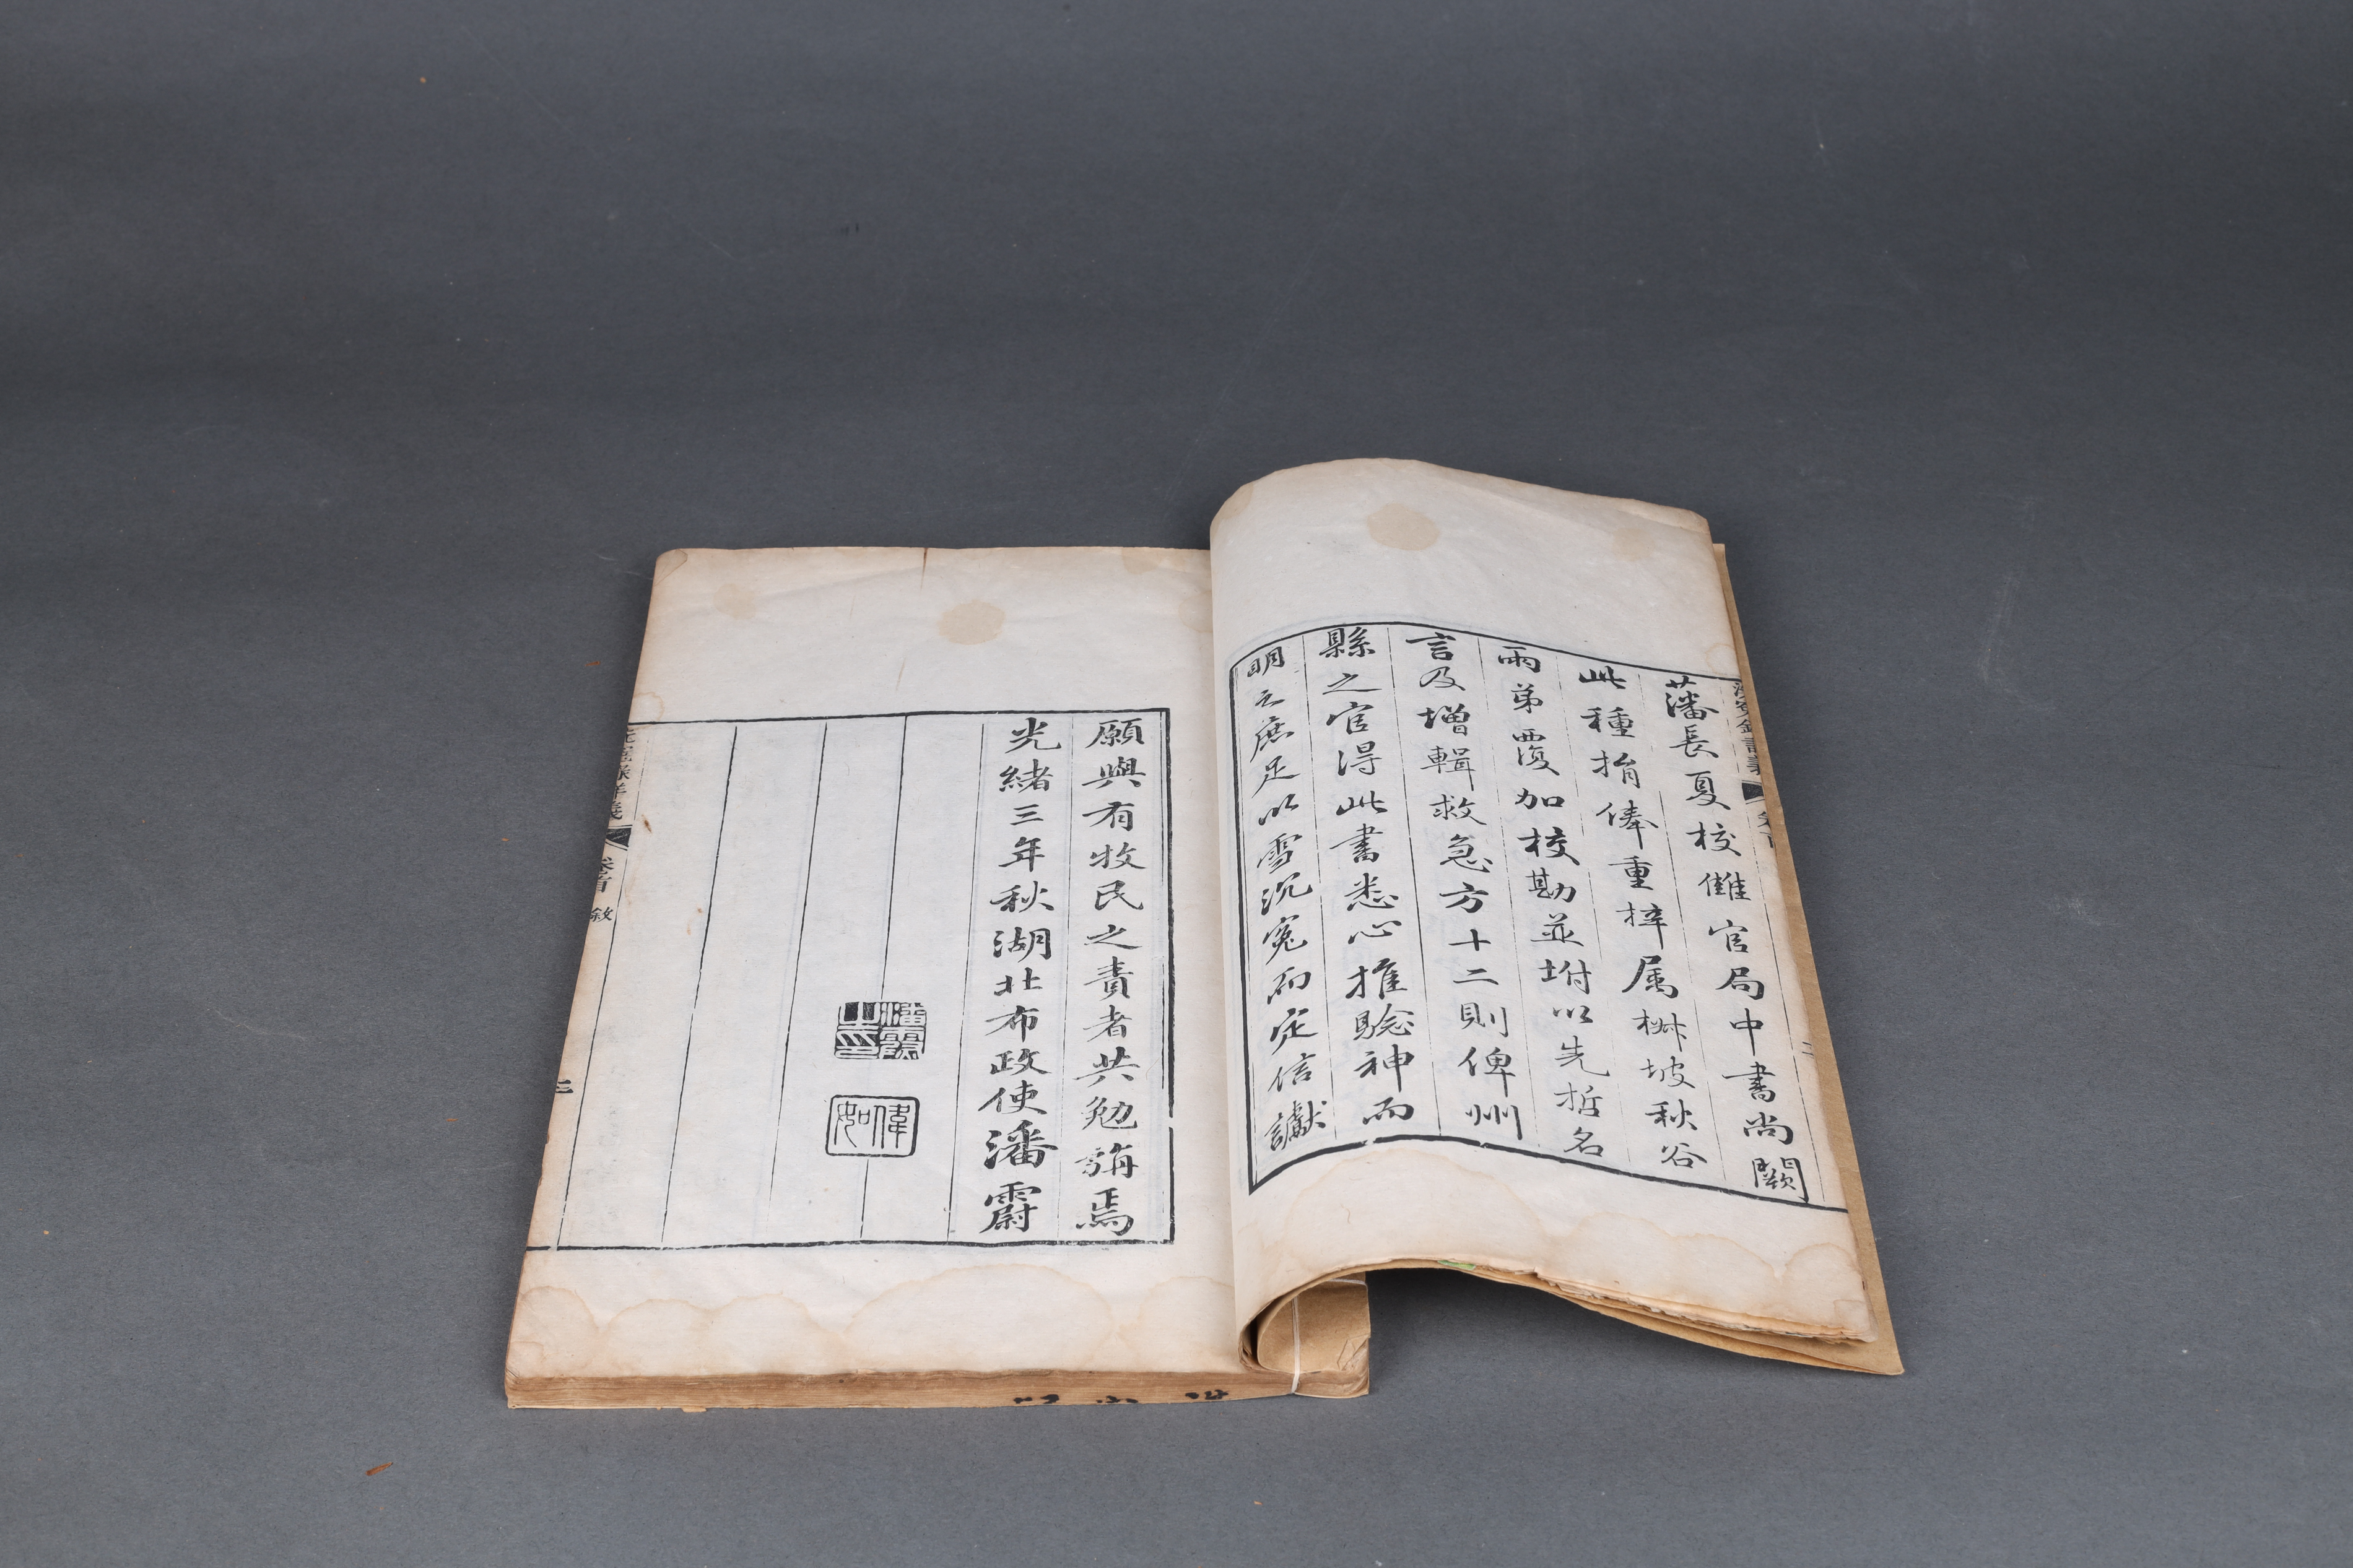 藩長夏校讎官局中書尚闕
此種捐俸重梓属椒坡秋谷
兩弟覆加校勘並坿以先哲名
言及增輯救急方十二則俾州
縣之官得此書悉心推驗神而
明之庶足以雪沉冤而定信讞
願與有牧民之責者共勉旃焉
光緒三年秋湖北布政使潘霨
潘霨之印
偉如
洗冤錄詳義
卷首
敘
二